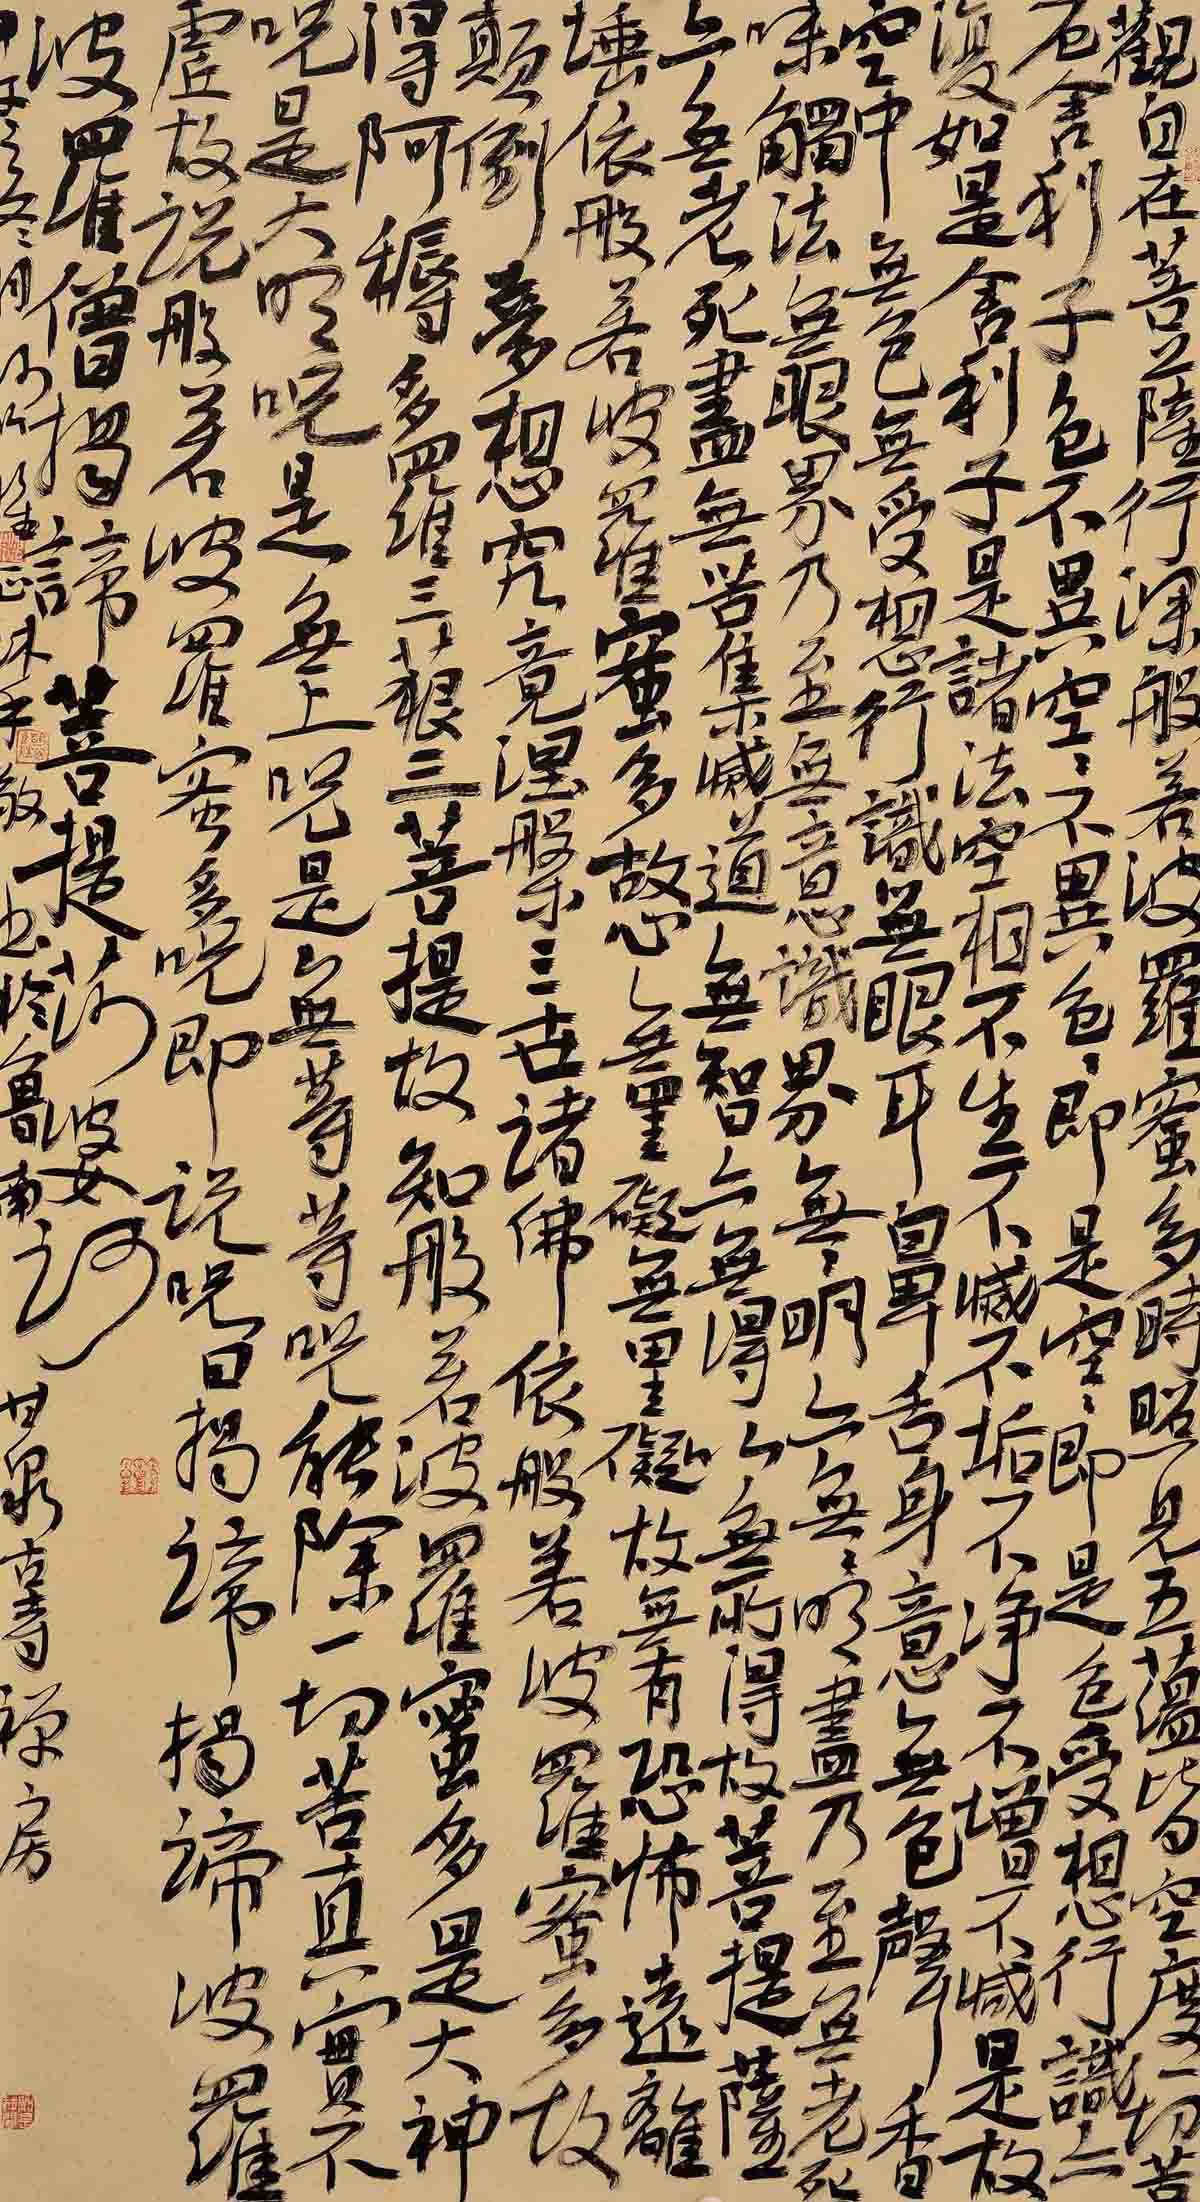 觀自在菩薩行深般若波羅蜜多時照見五蘊皆空度一切苦
厄舍利子色不異空〻不異色〻即是空〻即是色受想行識亦
復如是舍利子是諸法空相不生不滅不垢不淨不增不減是故
空中無色無受想行識無眼耳鼻舌身意無色聲香
味觸法無眼界乃至無意識界無〻明亦無〻明盡乃至無老死
亦無老死盡無苦集滅道無智亦無得以無所得故菩提薩
埵依般若波羅蜜多故心無罣礙無罣礙故無有恐怖遠離
顛倒夢想究竟涅槃三世諸佛依般若波羅蜜多故
得阿耨多羅三藐三菩提故知般若波羅蜜多是大神
咒是大明咒是無上咒是無等等咒能除一切苦真實不
虛故說般若波羅蜜多咒即說咒曰揭諦揭諦波羅
波羅僧揭諦菩提莎婆訶
之冬月 沐手敬書於魯南 甘泉古寺禪房